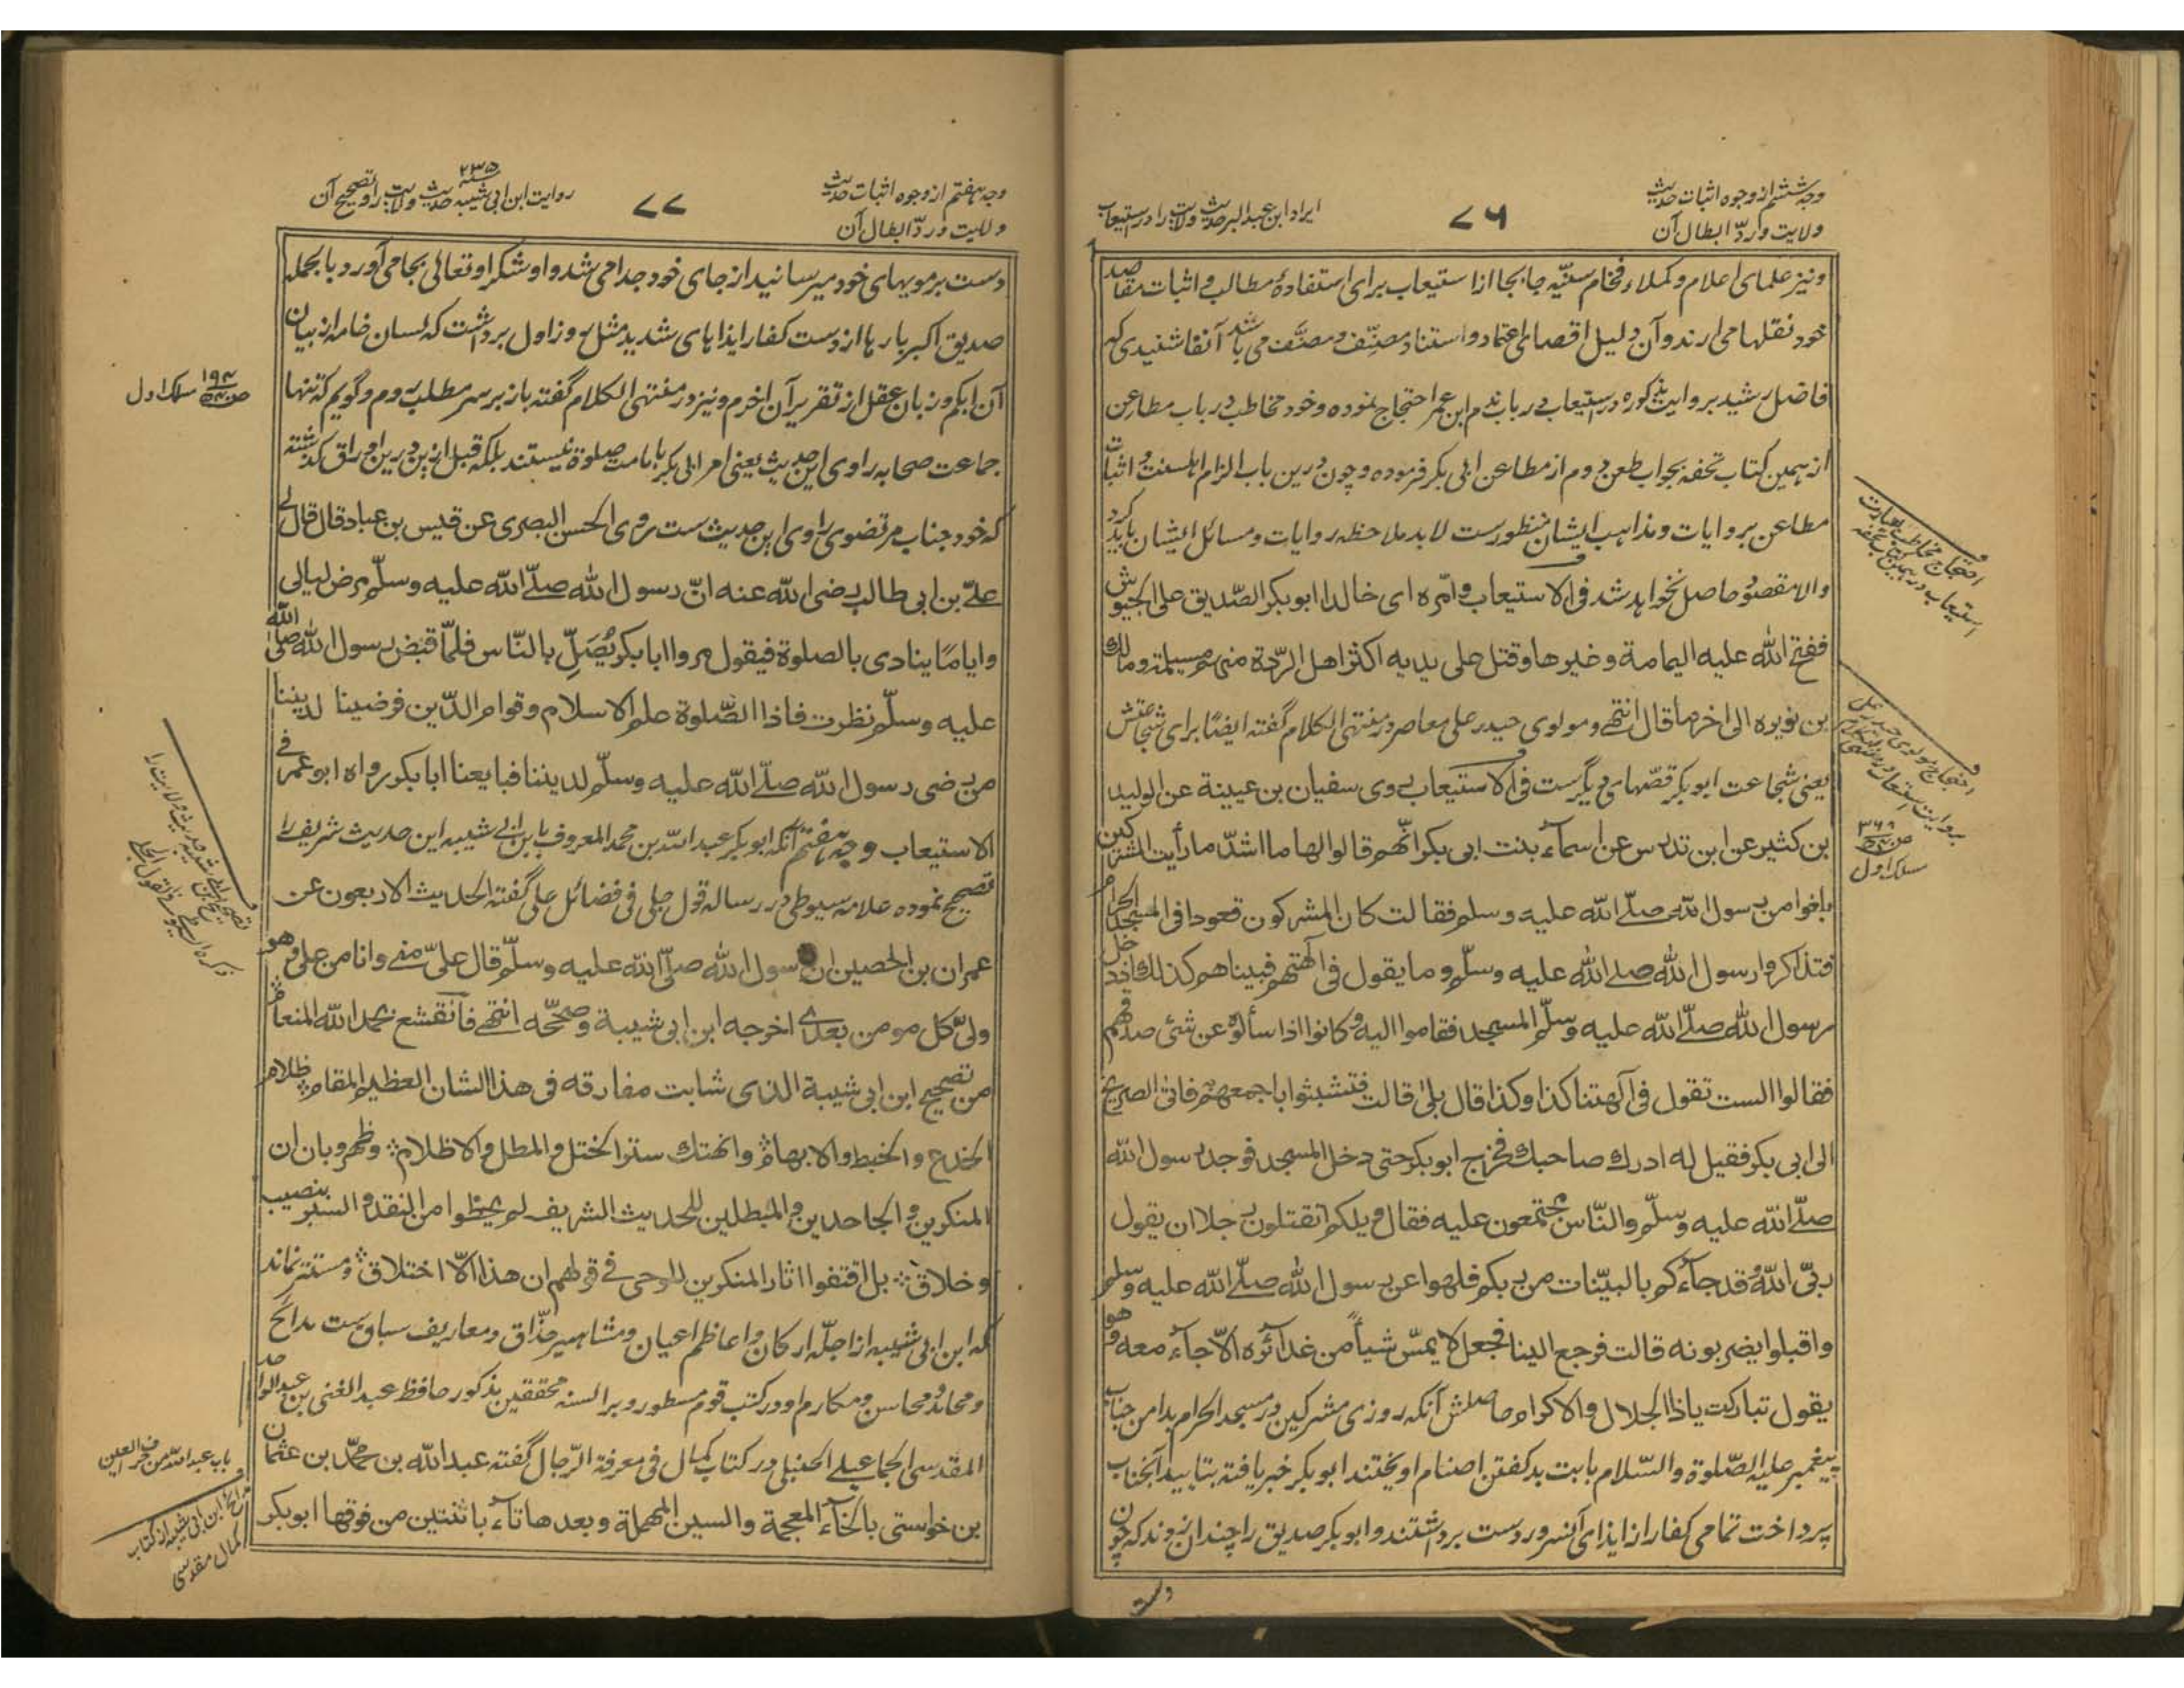 وجه ششم از وجوه اثبات حدیث
ولایت و ردّ ابطال آن
۷۶
ایراد ابن عبد البر حدیث ولایت را در استیعاب
ونیز علمای اعلام و کملاء فخام سنّیّه جابجا از استیعاب برای استفادهٔ مطالب و اثبات مقاصد
خود نقلها می آرند و آن دلیل اقصای اعتماد و استناد مصنِّف و مصنَّف می باشد آنفا شنیدی که
فاضل رشید بروایت مذکوره در استیعاب در باب ندم ابن عمر احتجاج نموده و خود مخاطب در باب مطاعن
از همین کتاب تحفه بجواب طعن دوم از مطاعن ابی بکر فرموده و چون درین باب الزام اهلسنت و اثبات
مطاعن بروایات و مذاهب ایشان منظورست لابد ملاحظه روایات و مسائل ایشان باید کرد
والا مقصود حاصل نخواهد شد فی الاستیعاب و امّره ای خالدا ابو بکر الصّدیق علی الجیوش
ففتح الله علیه الیمامة و غیرها و قتل علی یدیه اکثر اهل الرّدة منهم مسیلمة و مالک
بن نویره الی اخر ما قال انتهی و مولوی حیدر علی معاصر در منتهی الکلام گفته ایضًا برای شجاعتش
یعنی شجاعت ابو بکر قصّهای دیگرست فی الاستیعاب روی سفیان بن عیینة عن الولید
بن کثیر عن ابن تدرس عن اسماء بنت ابی بکر انّهم قالوا لها ما اشدّ ما رأیت المشرکین
بلغوا من رسول الله صلّی الله علیه وسلم فقالت کان المشرکون قعودا فی المسجد الحرام
فتذاکروا رسول الله صلی الله علیه وسلّم و ما یقول فی آلهتهم فبیناهم کذلک اذ دخل
رسول الله صلّی الله علیه وسلّم المسجد فقاموا الیه و کانوا اذا سألوه عن شئی صدقهم
فقالوا الست تقول فی آلهتنا کذا و کذا قال بلی قالت فتشبثوا باجمعهم فاتی الصریخ
الی ابی بکر فقیل له ادرک صاحبک فخرج ابو بکر حتی دخل المسجد فوجد رسول الله
صلّی الله علیه وسلّم والنّاس مجتمعون علیه فقال ویلکم اتقتلون رجلا ان یقول
ربّی الله و قد جاءکم بالبیّنات من ربکم فلهوا عن رسول الله صلّی الله علیه وسلم
واقبلوا یضربونه قالت فرجع الینا فجعل لا یمسّ شیأً من غدائره الّا جاء معه و هو
یقول تبارکت یا ذا الجلال والاکرام حاصلش آنکه روزی مشرکین در مسجد الحرام بدامن جناب
پیغمبر علیه الصّلوة والسّلام بابت بد گفتن اصنام آویختند ابو بکر خبر یافته بتایید آنجناب
پرداخت تمامی کفار از ایذای آنسرور دست برداشتند و ابو بکر صدیق را چندان زدند که چون
دست
احتجاج مخاطب بعبارت
استیعاب در همین کتاب تحفه
احتجاج مولوی حیدر علی
بروایت استیعاب در منتهی الکلام
ص ۳۶۹
مسلک اول
وجه هفتم از وجوه اثبات حدیث
ولایت و ردّ ابطال آن
۷۷
۲۳۵
روایت ابن ابی شیبه حدیث ولایت را و تصحیح آن
دست بر مویهای خود میرسانید از جای خود جدا می شد و او شکر او تعالی بجا می آورد بالجمله
صدیق اکبر بارها از دست کفار ایذاهای شدید مثل روز اول برداشت که لسان خامه از بیان
آن ابکم و زبان عقل از تقریر آن اخرم و نیز در منتهی الکلام گفته باز بر سر مطلب روم و گویم که تنها
جماعت صحابه راوی این حدیث یعنی امر ابی بکر بامامت صلوة نیستند بلکه قبل ازین درین اوراق گذشته
که خود جناب مرتضوی راوی این حدیث ست روی الحسن البصری عن قیس بن عباد قال قال لی
علیّ بن ابی طالب رضی الله عنه انّ رسول الله صلّی الله علیه وسلّم مرض لیالی
وایامًا ینادی بالصلوة فیقول مروا ابا بکر یُصَلّ بالنّاس فلمّا قبض رسول الله صلّی الله
علیه وسلّم نظرت فاذا الصّلوة علم الاسلام و قوام الدّین فرضینا لدنیانا
من رضی رسول الله صلّی الله علیه وسلّم لدیننا فبایعنا ابا بکر رواه ابو عمر فی
الاستیعاب وجه هفتم آنکه ابو بکر عبد الله بن محمد المعروف بابن ابی شیبه این حدیث شریف را
تصحیح نموده علامه سیوطی در رساله قول جلی فی فضائل علی گفته الحدیث الاربعون عن
عمران بن الحصین ان رسول الله صلّی الله علیه وسلّم قال علیّ منی و انا من علی و هو
ولیّ کل مومن بعدی اخرجه ابن ابی شیبة و صحّحه انتهی فانقشع بحمد الله المنعام
من تصحیح ابن ابی شیبة الذی شابت مفارقه فی هذا الشان العظیم المقام ظلام
الخدع والخبط والابهام وانهتک ستر الختل والمطل والاظلام و ظهر و بان ان
المنکرین و الجاحدین و المبطلین للحدیث الشریف لم یحظوا من النقد و السبر بنصیب
و خلاق بل اقتفوا اثار المنکرین للوحی فی قولهم ان هذا الّا اختلاق و مستتر نماند
که ابن ابی شیبه از اجلّه ارکان و اعاظم اعیان و مشاهیر حذّاق و معاریف سباق ست مدائح
و محامد و محاسن و مکارم او در کتب قوم مسطور و بر السنه محققین مذکور حافظ عبد الغنی بن عبد الواحد
المقدسی الجماعیلی الحنبلی در کتاب کمال فی معرفة الرّجال گفته عبد الله بن محمّد بن عثمان
بن خواستی بالخاء المعجمة والسین المهملة و بعدها تاء باثنتین من فوقها ابو بکر
ص ۱۹۴ مسلک اول
تصحیح ابن ابی شیبه حدیث ولایت را
ذکره السیوطی فی القول الجلی
باب عبد الله من حرف العین
مدائح ابن ابی شیبه از کتاب
کمال مقدسی